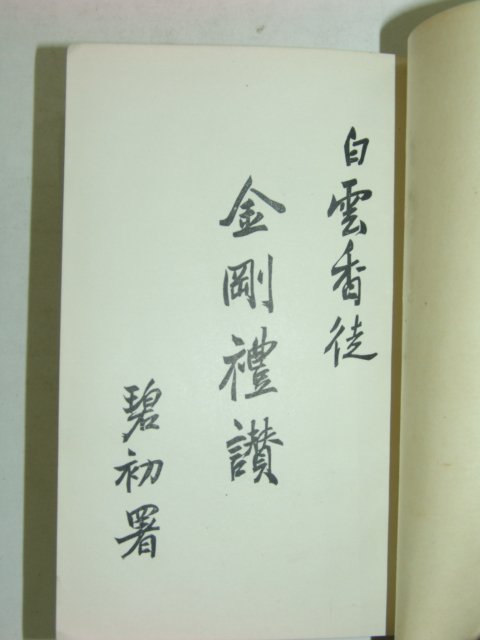 白雲香徒
金剛禮讃
碧初署